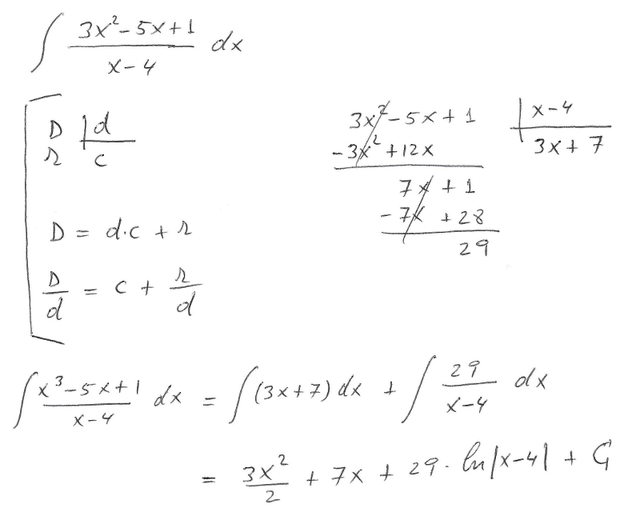 ∫ (3x² - 5x + 1)/(x - 4) dx
D | d
r   c
D = d·c + r
D/d = c + r/d
3x² - 5x + 1 | x - 4
- 3x² + 12x   3x + 7
7x + 1
- 7x + 28
29
∫ (x³ - 5x + 1)/(x - 4) dx = ∫ (3x + 7) dx + ∫ 29/(x - 4) dx
= 3x²/2 + 7x + 29 · ln|x - 4| + C₁